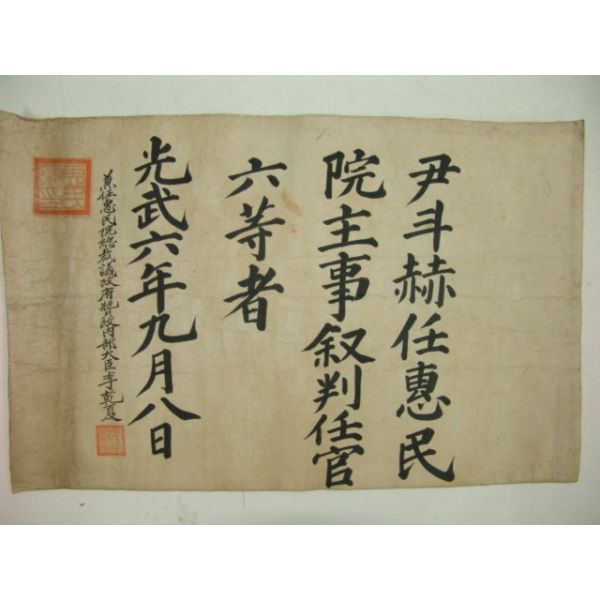 尹斗赫任惠民
院主事叙判任官
六等者
光武六年九月八日
兼任惠民院總裁議政府贊政內部大臣李乾夏